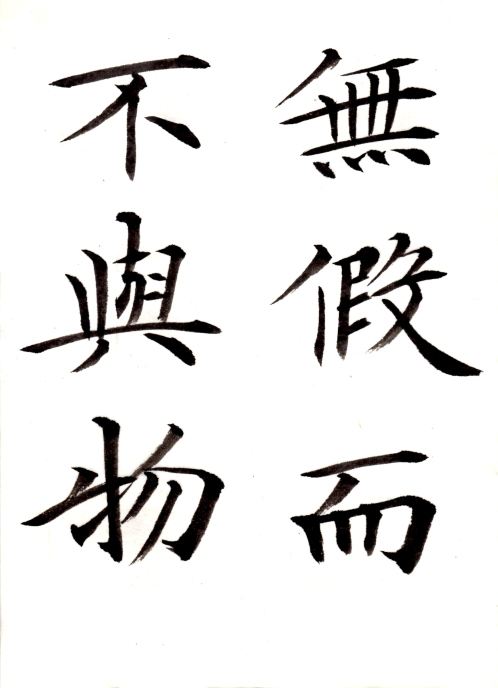 無假而
不與物